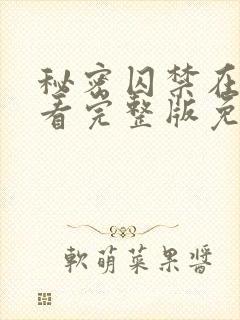 秘密囚禁在
看完整版免
軟萌菜果醬